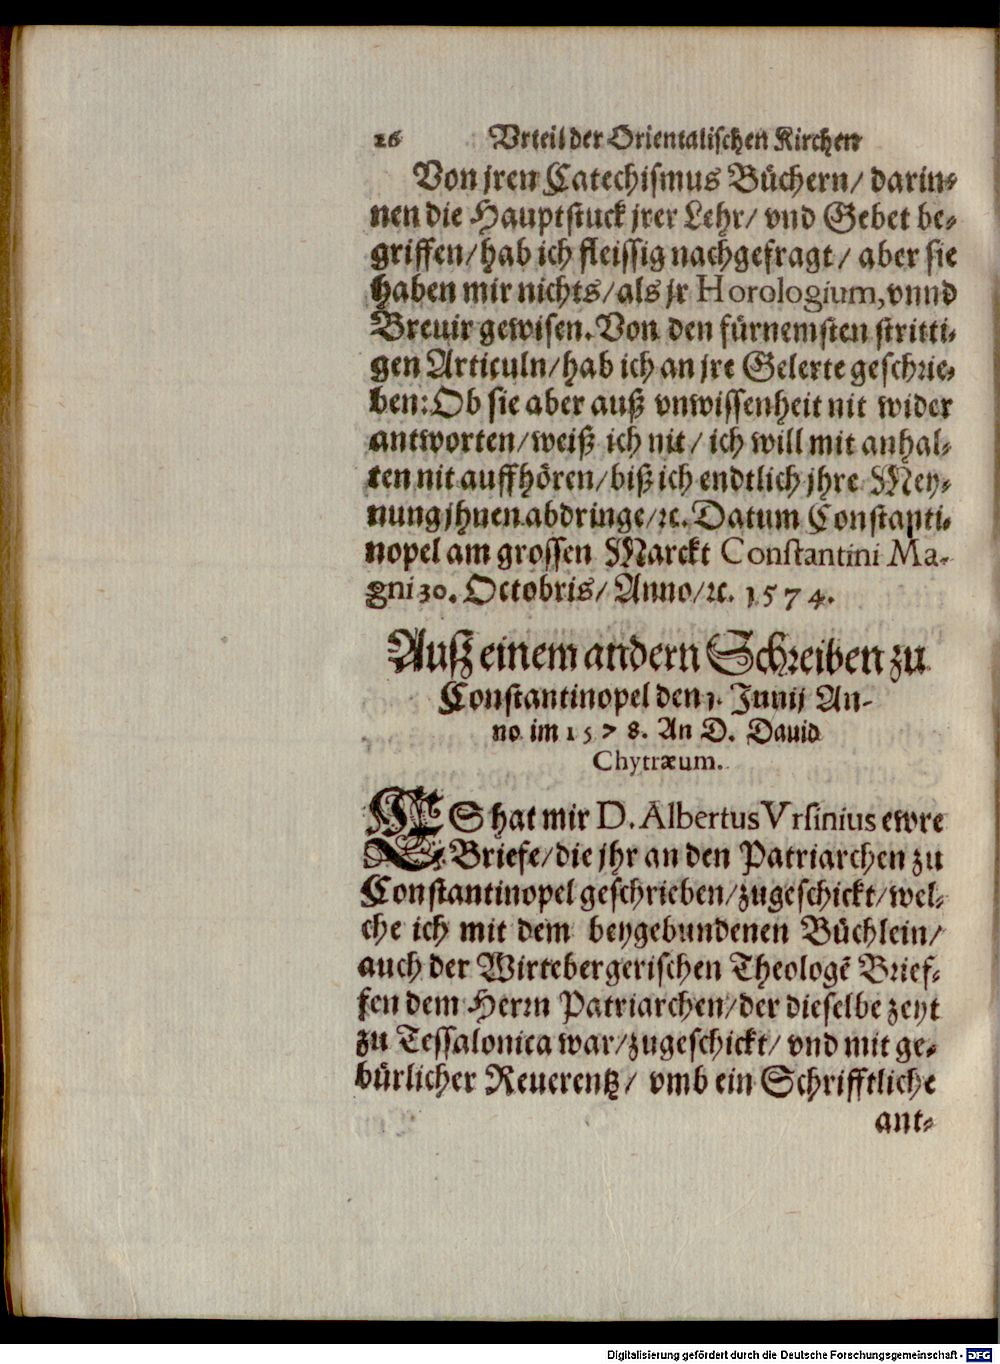 26 Vrteil der Orientalischen Kirchen
Von jren Catechismus Büchern/ darin-
nen die Hauptstuck jrer Lehr/ vnd Gebet be-
griffen/ hab ich fleissig nachgefragt/ aber sie
haben mir nichts/ als jr Horologium, vnnd
Breuir gewisen. Von den fürnemsten stritti-
gen Articuln/ hab ich an jre Gelerte geschrie-
ben: Ob sie aber auß vnwissenheit nit wider
antworten/ weiß ich nit/ ich will mit anhal-
ten nit auffhören/ biß ich endtlich jhre Mey-
nung jhnen abdringe/ ꝛc. Datum Constanti-
nopel am grossen Marckt Constantini Ma-
gni 30. Octobris/ Anno/ ꝛc. 1574.
Auß einem andern Schreiben zu
Constantinopel den 1. Junij An-
no im 1578. An D. Dauid
Chytræum.
ES hat mir D. Albertus Vrsinius ewre
Briefe/ die jhr an den Patriarchen zu
Constantinopel geschrieben/ zugeschickt/ wel-
che ich mit dem beygebundenen Büchlein/
auch der Wirtebergerischen Theologẽ Brief-
fen dem Herrn Patriarchen/ der dieselbe zeyt
zu Tessalonica war/ zugeschickt/ vnd mit ge-
bürlicher Reuerentz/ vmb ein Schrifftliche
ant-
Digitalisierung gefördert durch die Deutsche Forschungsgemeinschaft - DFG